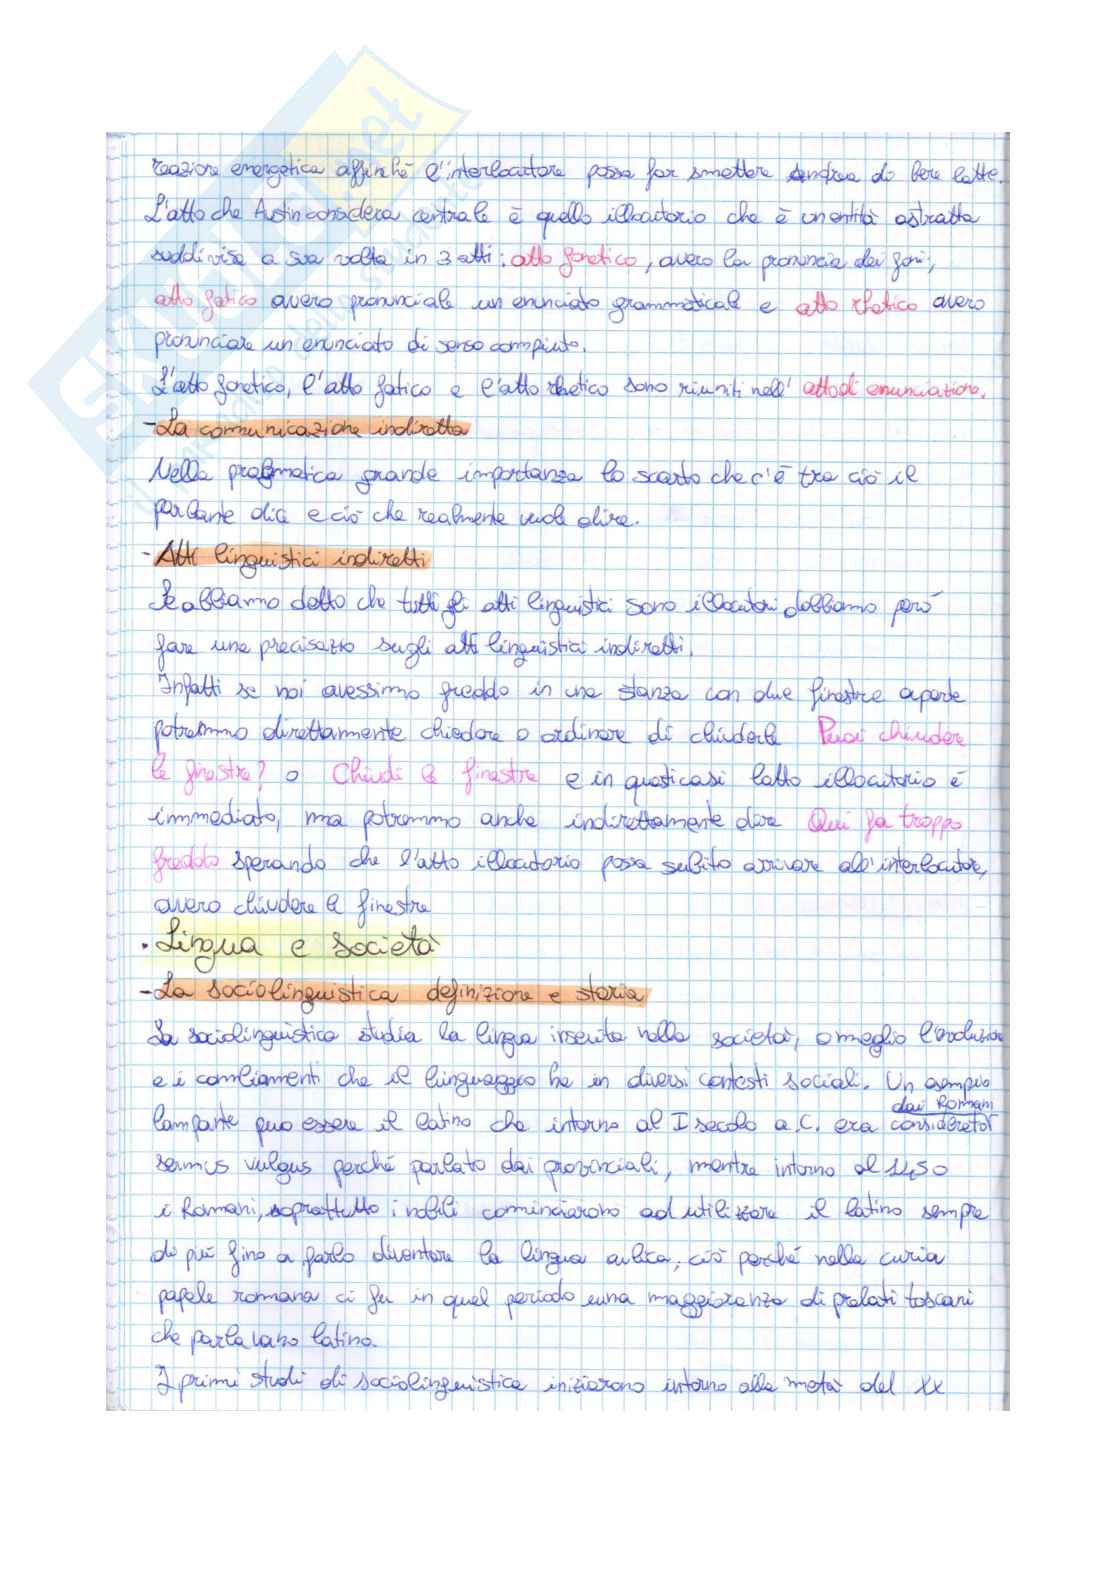 reazione energetica affinché l'interlocutore possa far smettere Andrea di bere latte.
L'atto che Austin considera centrale è quello illocutorio che è un entità astratta
suddivisa a sua volta in 3 atti: atto fonetico, avero la pronuncia dei foni;
atto fatico avero pronunciale un enunciato grammaticale e atto rhetico avero
pronunciare un enunciato di senso compiuto.
L'atto fonetico, l'atto fatico e l'atto rhetico sono riuniti nell' atto di enunciazione.
- La comunicazione indiretta
Nella pragmatica grande importanza lo scarto che c'è tra ciò il
parlante dice e ciò che realmente vuole dire.
- Atti linguistici indiretti
Se abbiamo detto che tutti gli atti linguistici sono illocutori dobbiamo però
fare una precisazio sugli atti linguistici indiretti.
Infatti se noi avessimo freddo in una stanza con due finestre aperte
potremmo direttamente chiedere o ordinare di chiuderle Puoi chiudere
le finestre? o Chiudi le finestre e in questi casi latto illocutorio è
immediato, ma potremmo anche indirettamente dire Qui fa troppo
freddo sperando che l'atto illocutorio possa subito arrivare all'interlocutore,
avero chiudere le finestre
• Lingua e società
- La sociolinguistica definizione e storia
La sociolinguistica studia la lingua inserita nella società, o meglio l'evoluzione
e i cambiamenti che il linguaggio ha in diversi contesti sociali. Un esempio
dai Romani
lampante può essere il latino che intorno al I secolo a.C. era considerato
sermus vulgus perché parlato dai provinciali, mentre intorno al 1450
i Romani, soprattutto i nobili cominciarono ad utilizzare il latino sempre
di più fino a farlo diventare la lingua aulica, ciò perché nella curia
papale romana ci fu in quel periodo una maggioranza di prelati toscani
che parlavano latino.
I primi studi di sociolinguistica iniziarono intorno alla metà del XX
skuola.net